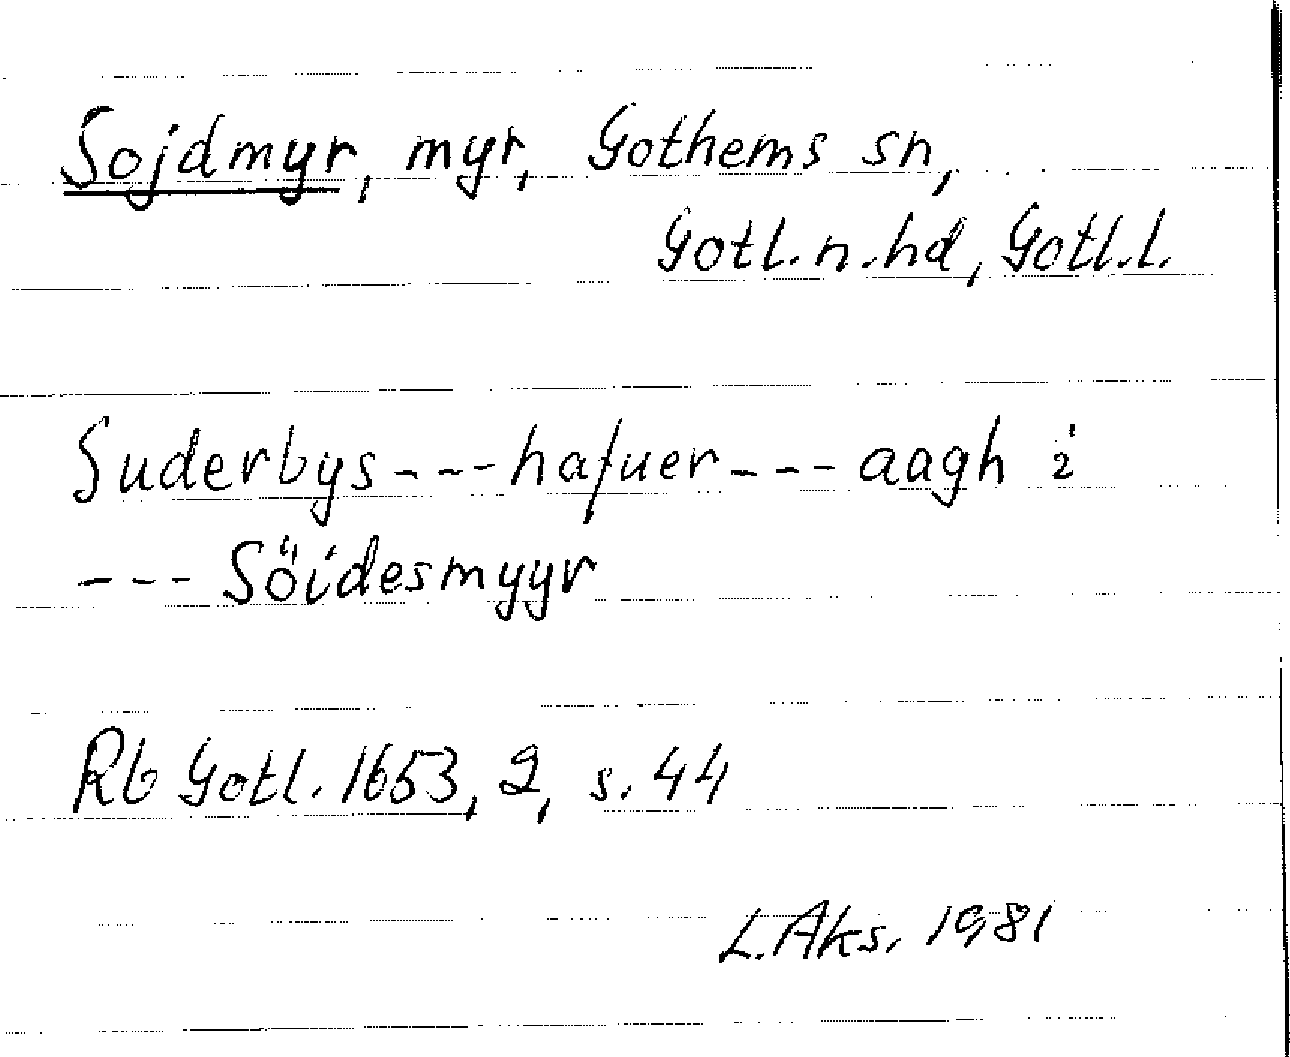 Sojdmyr, myr, Gothems sn,
Gotl. n. hd, Gotl. l.
Suderbys --- hafuer --- aagh i
--- Söidesmyyr
Rb Gotl. 1653, 2, s. 44
L. Aks. 1981